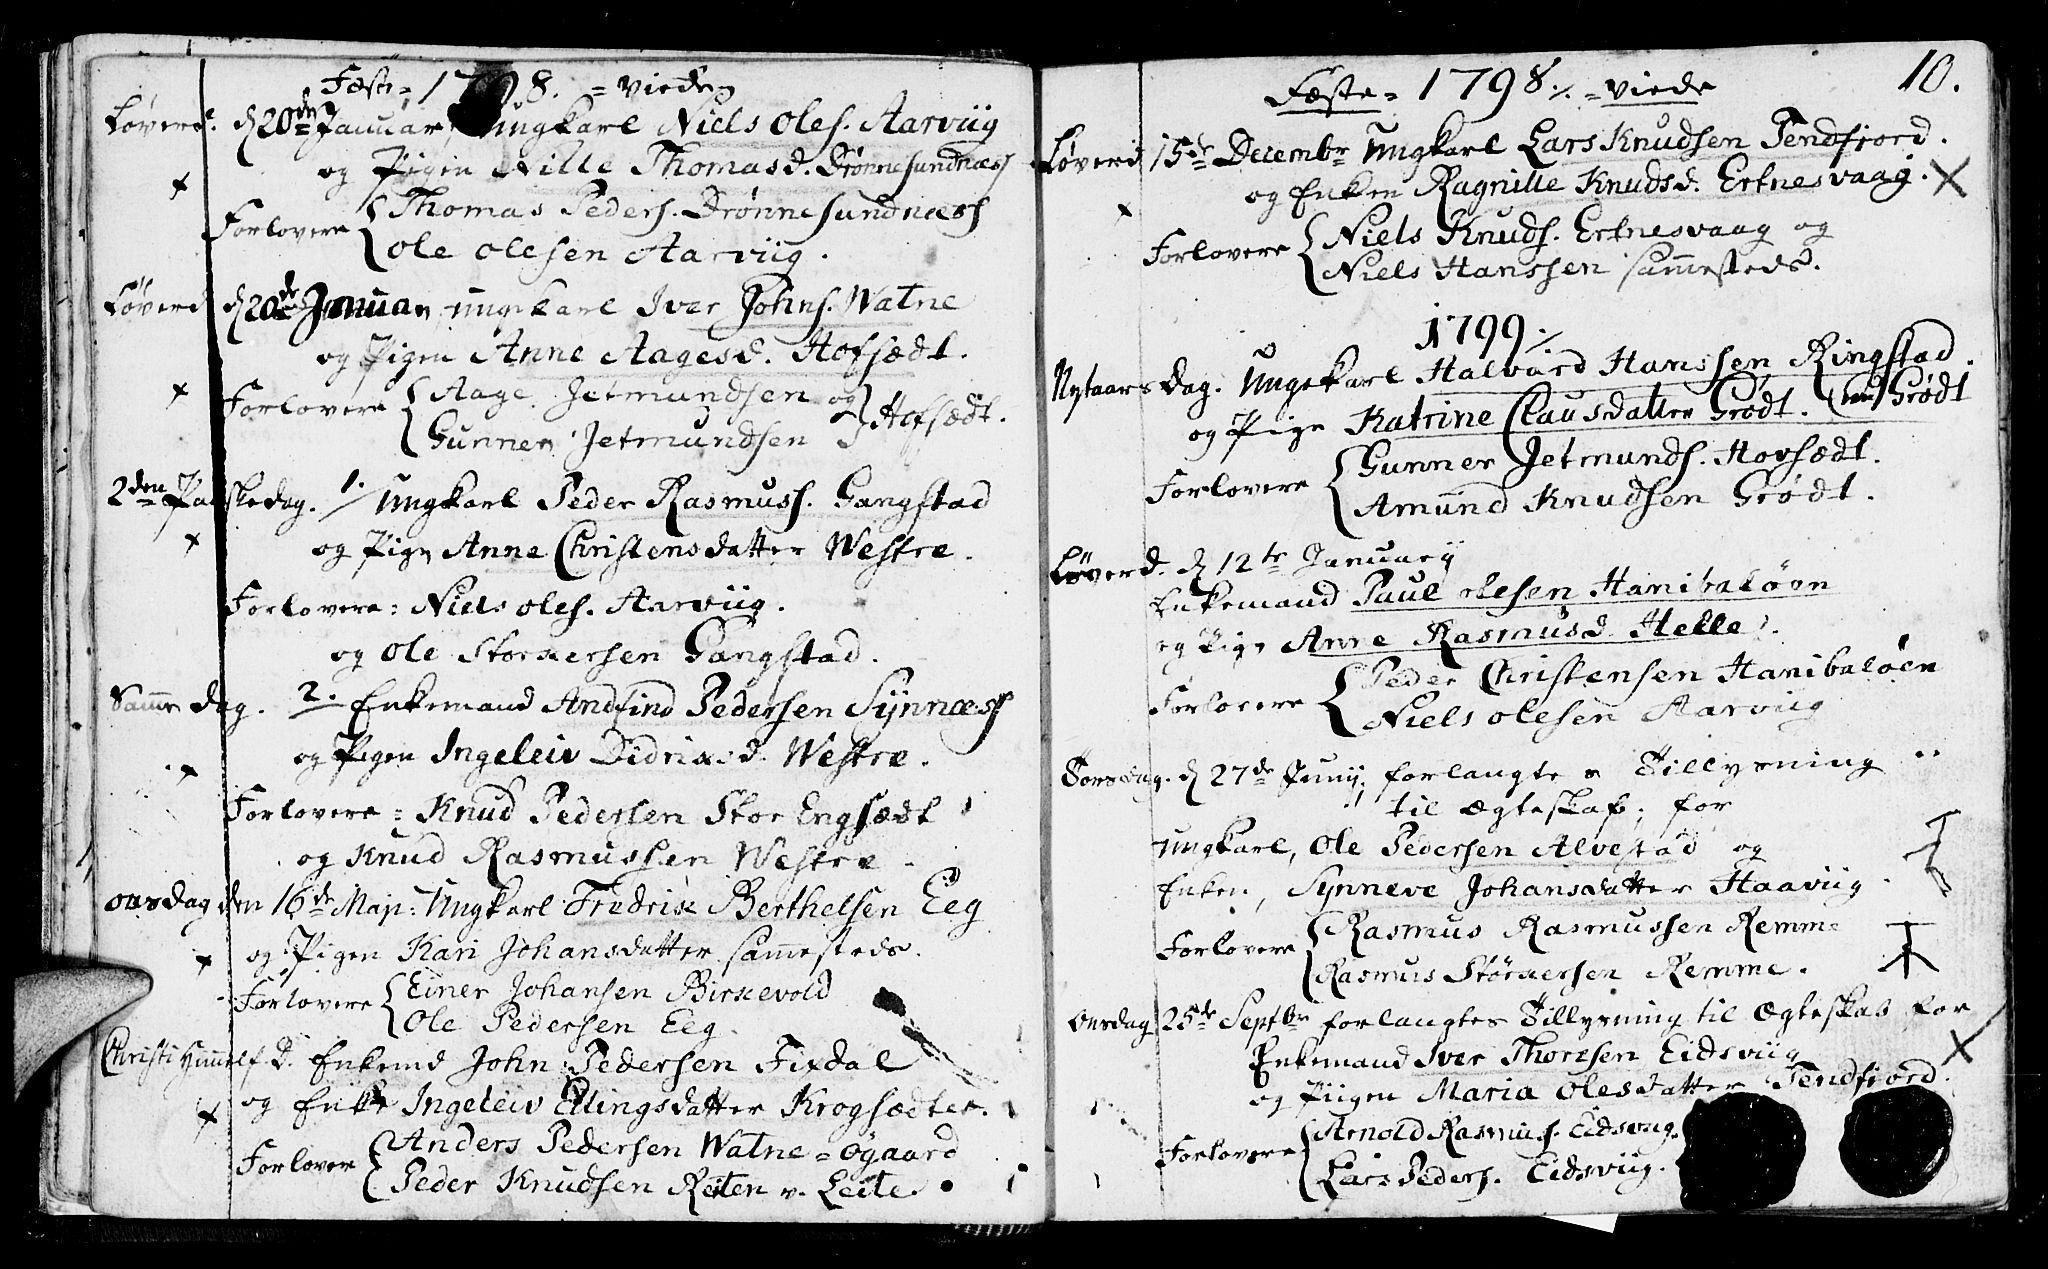 Fæste = 1798. = viede
Løverd. d 20de Januar, Ungkarl Niels Oles. Aarviig
og Pigen Nille Thomasd. Drønnesundnæss
Forlovere Thomas Peders. Drønnesundnæss
Ole Olesen Aarviig.
Løverd d 20de Januar, ungekarl Iver Johns. Watne
og Pigen Anne Aagesd. Hofsædt.
Forlovere Aage Jetmundsen og
Gunner Jetmundsen Hofsædt.
2den Paaskedag. 1. Ungkarl Peder Rasmuss. Gangstad
og Pign Anne Christensdatter Westre.
Forlovere: Niels Oles. Aarviig.
og Ole Storxersen Gangstad.
Samme dag. 2. Enkemand Andfind Pedersen Synnæss
og Pigen Ingeleiv Didrixsd. Westre.
Forlovere = Knud Pedersen Stor Engsædt
og Knud Rasmussen Westre
onsdag den 16de Maj: Ungkarl Fredrix Berthelsen Eeg
og Pigen Kari Johansdatter sammesteds.
Forlovere Einer Johansen Birxevold
Ole Pedersen Eeg.
Christi Himmelf. D. Enkemd John Pedersen Fixdal
og Enke Ingeleiv Ellingsdatter Krogsædter.
Forlover Anders Pedersen Watne = Øgaard
Peder Knudsen Reiten v. Leite.
10.
Fæste = 1798 ./. = viede
Løverd 15de Decembr Ungkarl Lars Knudsen Tendfiord.
og Enken Ragnille Knudsd. Ertnesvaag.
Forlovere Niels Knuds. Ertnesvaag og
Niels Hanssen sammesteds.
1799 ./.
Nytaars Dag. Ungekarl Halvard Hanssen Ringstad.
og Pige Katrine Clausdatter Grødt. Grødt
Forlovere Gunner Jetmunds. Hovsædt.
Amund Knudsen Grødt.
Løverd. d 12te January
Enkemand Paul Olesen Hanibaløen
og Pige Anne Rasmusd. Helle.
Forlovere Peder Christensen Hanibaløen
Niels Olesen Aarviig
Torsdag. d 27de Junij, forlangte = Tillysning
til Ægteskab; for
Ungkarl, Ole Pedersen Alvestad og
Enken, Synneve Johansdatter Haaviig.
Forlovere Rasmus Rasmussen Remme
Rasmus Störxersen Remme.
Onsdag 25de Septbr forlangtes Tillysning til Ægteskab for
Enkemand Iver Thoresen Eidsviig
og Piigen Maria Olesdatter Tendfiord.
Forlovere Arnold Rasmus. Eidsviig.
Lars Peders. Eidsviig.